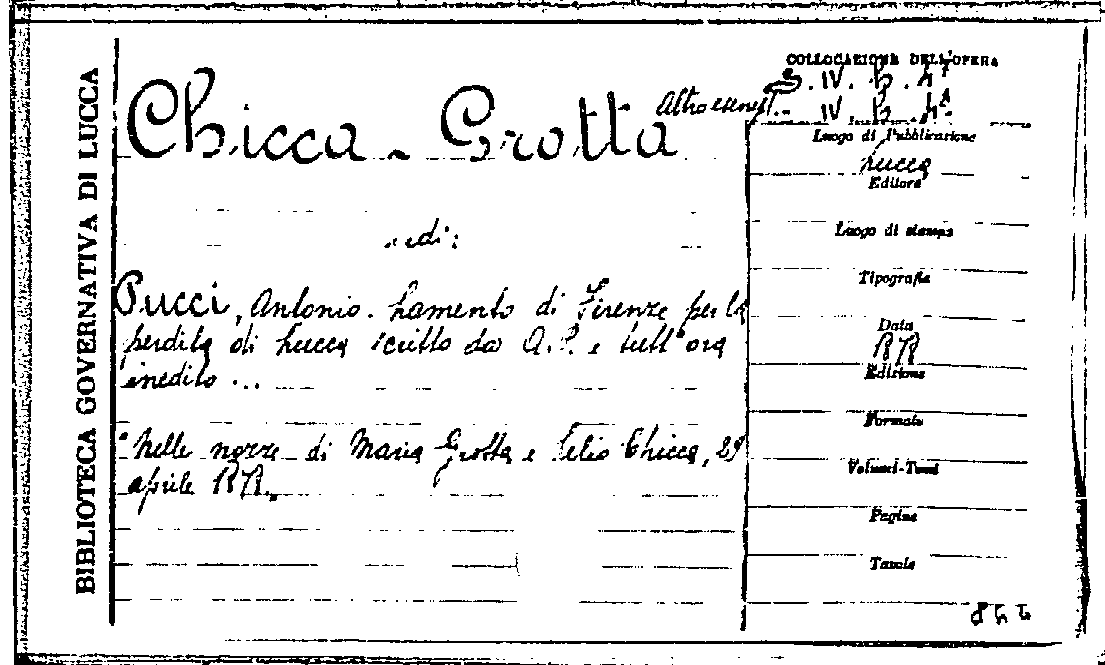 BIBLIOTECA GOVERNATIVA DI LUCCA
Chicca - Grotta
Altro esempl. -
vedi:
Pucci, Antonio. Lamento di Firenze per la
perdita di Lucca scritto da A. P. e tutt'ora
inedito ...
"Nelle nozze di Maria Grotta e Lelio Chicca, 29
aprile
COLLOCAZIONE DELL'OPERA
IV. b.
IV b.
Luogo di Pubblicazione
Lucca
Editore
Luogo di stampa
Tipografia
Data
Edizione
Formato
Volumi-Tomi
Pagine
Tavole